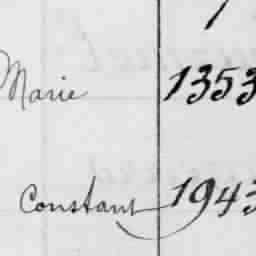 Marie 1353
Constant 1943